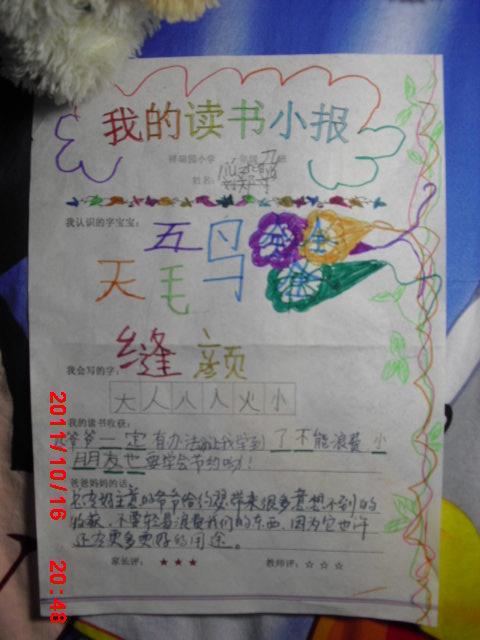 我的读书小报
祥瑞园小学 一年级 九 班
姓名:
我认识的字宝宝:
五 鸟
天 毛
缝 颜
我会写的字:
大 人 八 人 火 小
我的读书收获:
爷爷一定有办法让我学到了不能浪费 小
朋友也要学会节约哦!
爸爸妈妈的话:
总有好主意的爷爷给约瑟带来很多意想不到的
收获,不要轻易浪费我们的东西,因为它也许
还有更多更好的用途。
家长评: ★ ★ ★ 教师评: ☆ ☆ ☆
2011/10/16 20:48